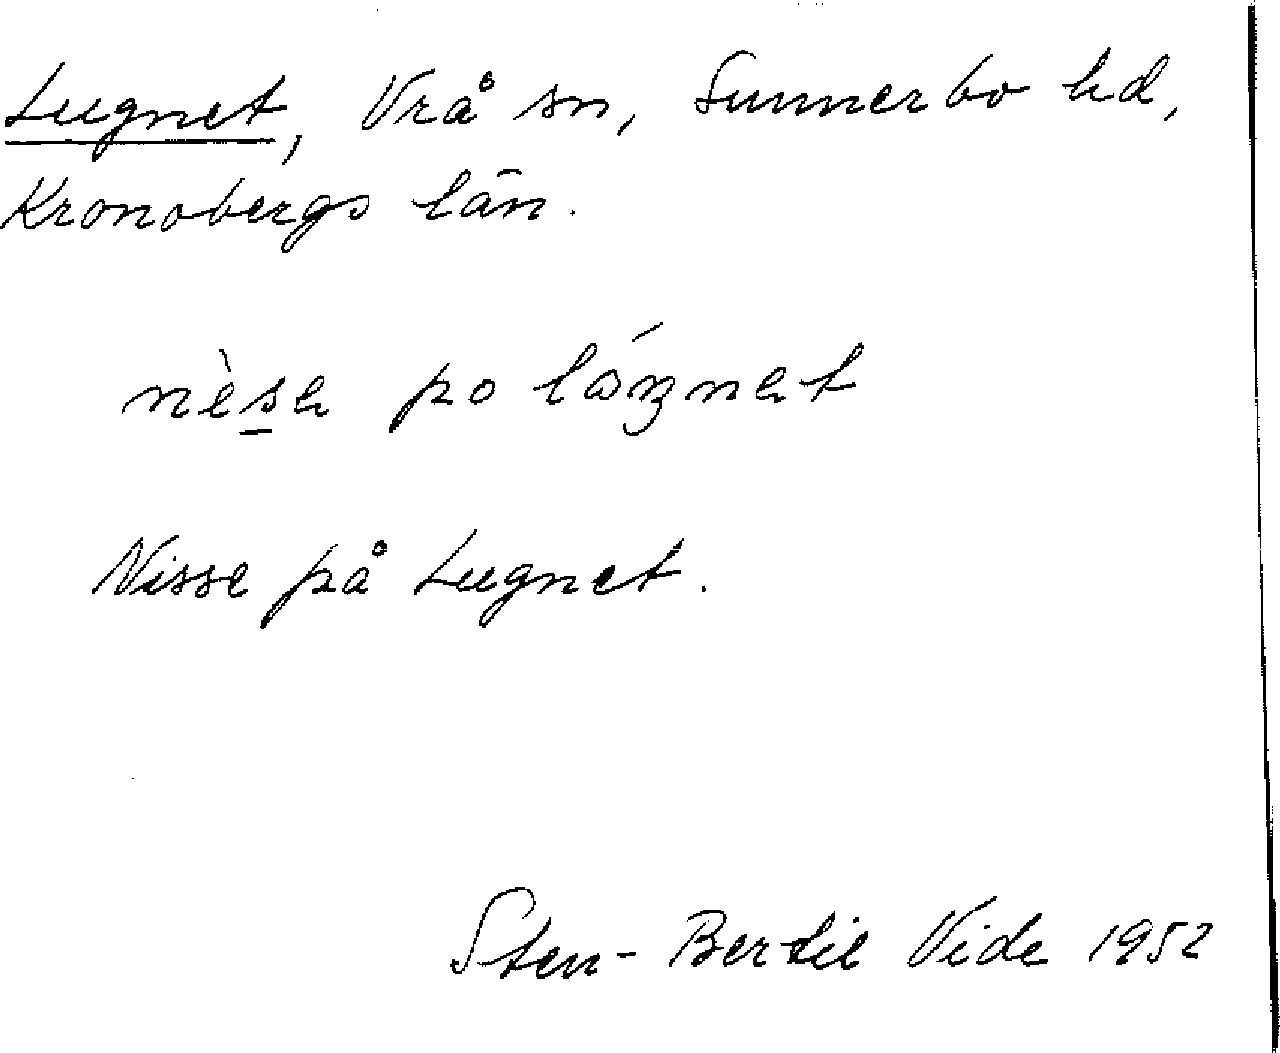 Lugnet, Vrå sn, Sunnerbo hd,
Kronobergs län.
nèse po
Nisse på Lugnet.
Sten-Bertil Vide 1952